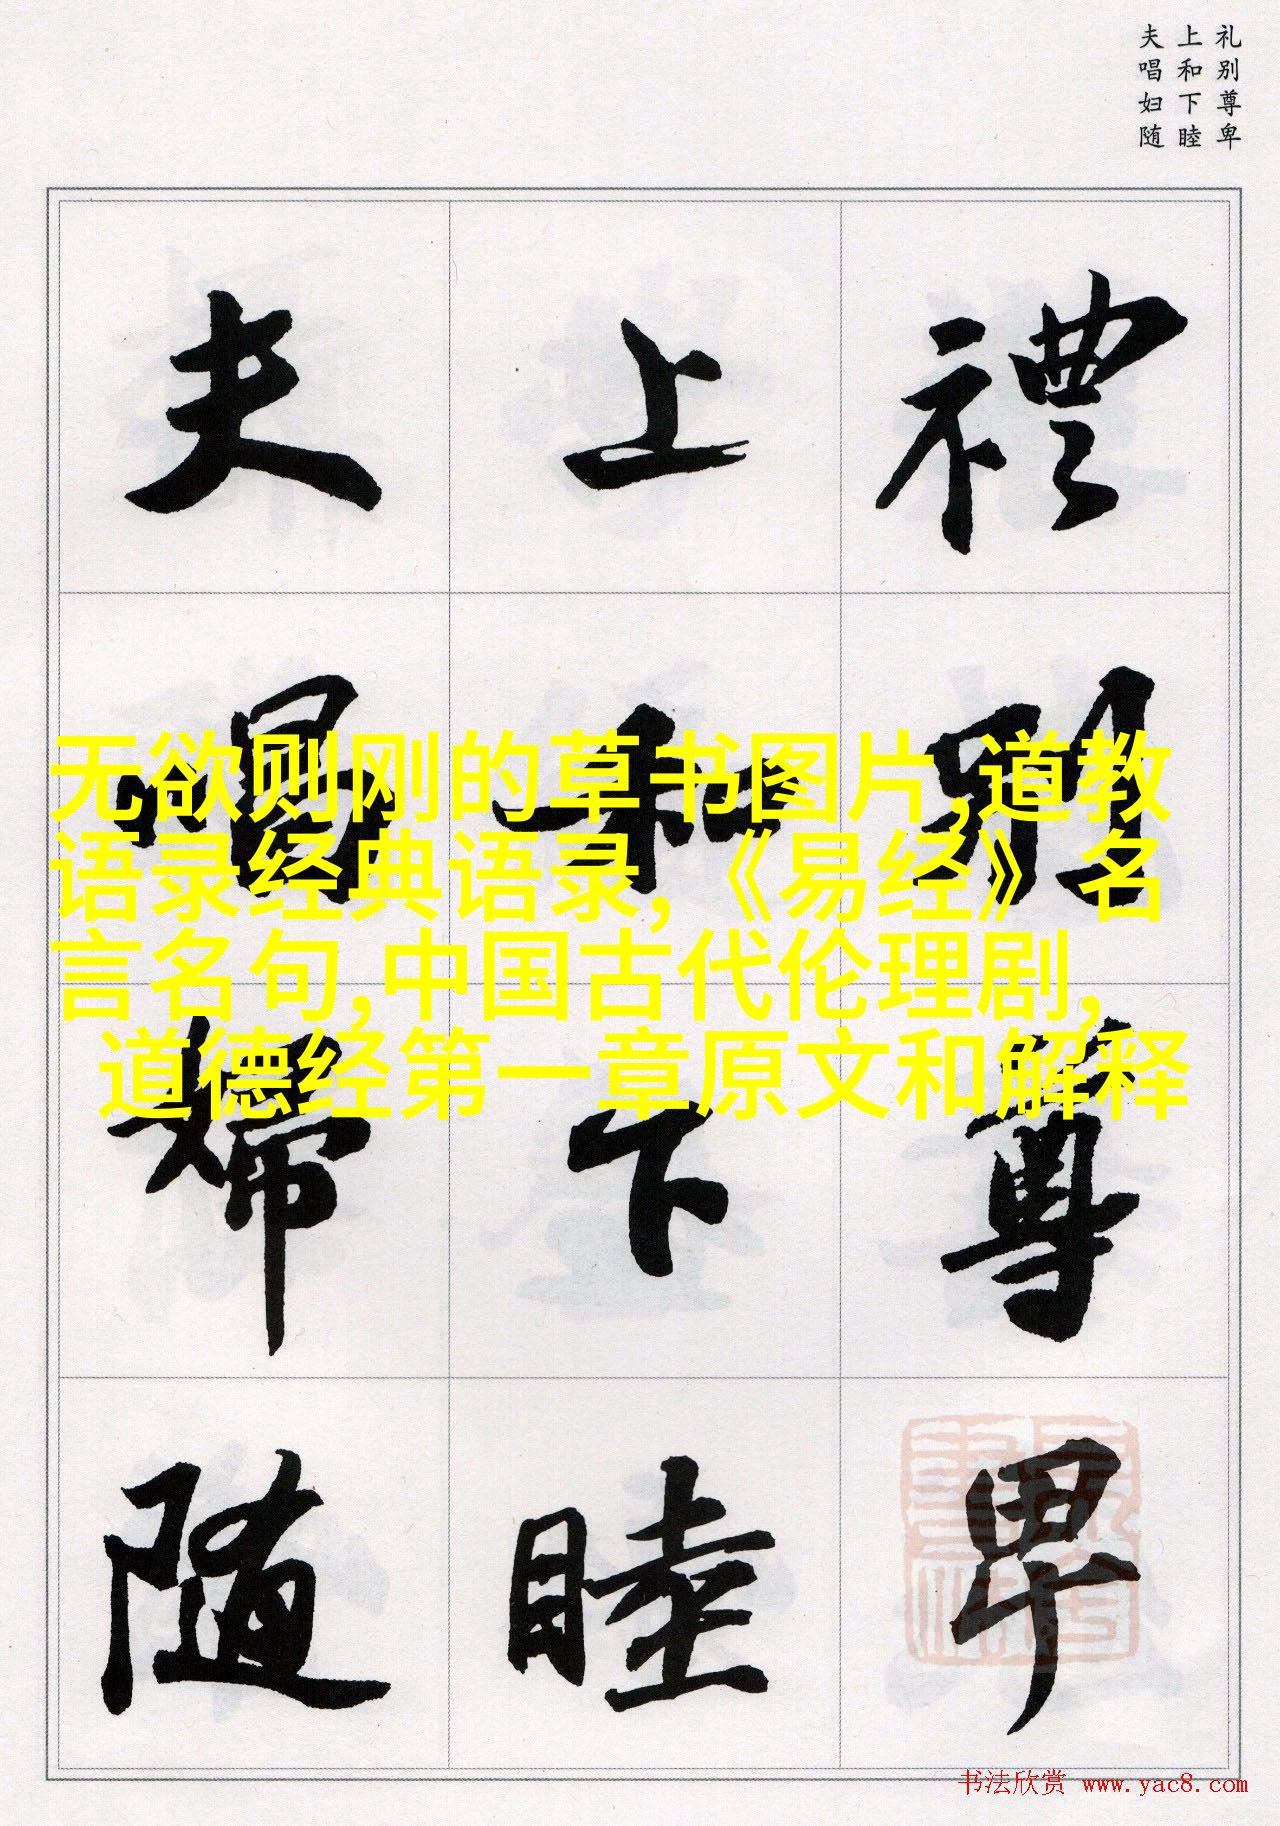 礼别尊卑
上和下睦
夫唱妇随
禮別尊卑
上和下睦
夫唱婦随
无欲则刚的草书图片,道教
语录经典语录,《易经》名
言名句,中国古代伦理剧,
道德经第一章原文和解释
书法欣赏 www.yac8.com